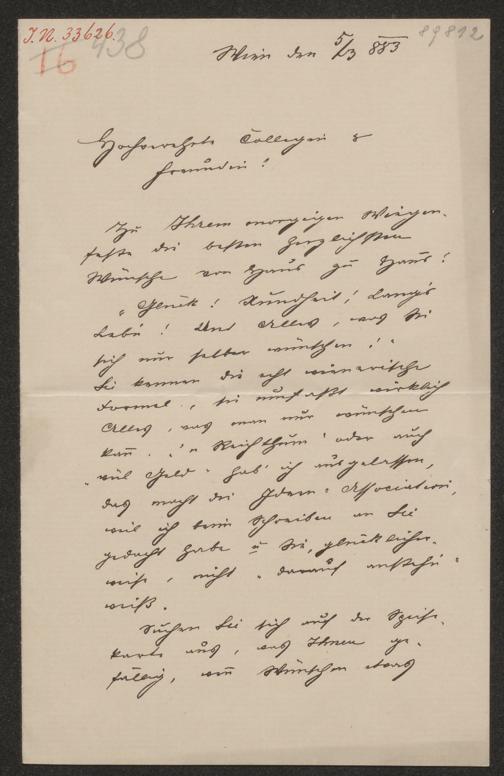 J. N. 33626.
16 438
89812
Wien den 5/3 883
Hochverehrte Collegin &
Freundin!
Zu Ihrem morgigen Wiegen-
feste die besten herzlichsten
Wünsche von Haus zu Haus!
"Glück! Xundheit! Lang's
Leb'n! Und Alles, was Sie
sich nur selber wünschen!"
Sie kennen die echt wienerische
Formel, sie umfaßt wirklich
Alles, was man nur wünschen
kann. "Reichthum" oder auch
"viel Geld" hab' ich ausgelassen,
das macht die Ideen-Association,
weil ich beim Schreiben an Sie
gedacht habe u Sie, glücklicher-
weise, nicht "darauf anstehn"
weiß.
Suchen Sie sich auf der Speise-
karte aus, was Ihnen ge-
fällig, wenn Wünschen etwas